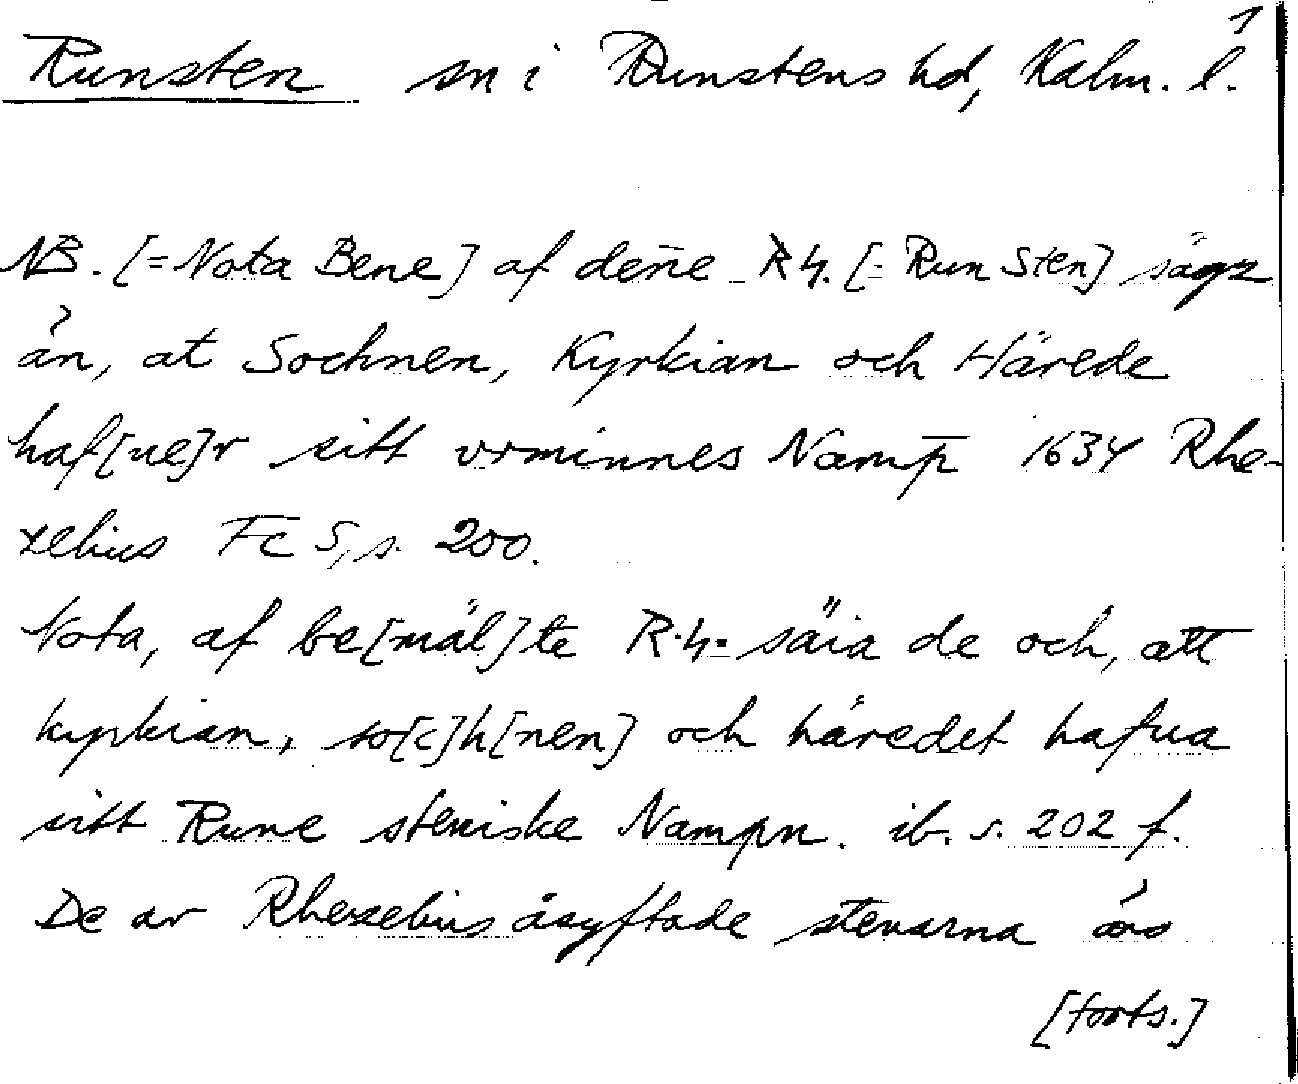 1
Runsten sn i Runstens hd, Kalm. l.
NB. [= Nota Bene] af deñe R4. [= Run Sten] säges
än, at Sochnen, Kyrkian och Härede
haf[ue]r sitt vrminnes Namp̄ 1634 Rhe-
zelius Fc 5, s. 200.
Nota, af be[mäl]te R.4. säia de och, att
kyrkian, so[c]h[nen] och häredet hafua
sitt Rune steniske Nampn. ib. s. 202 f.
De av Rhezelius åsyftade stenarna
[forts.]